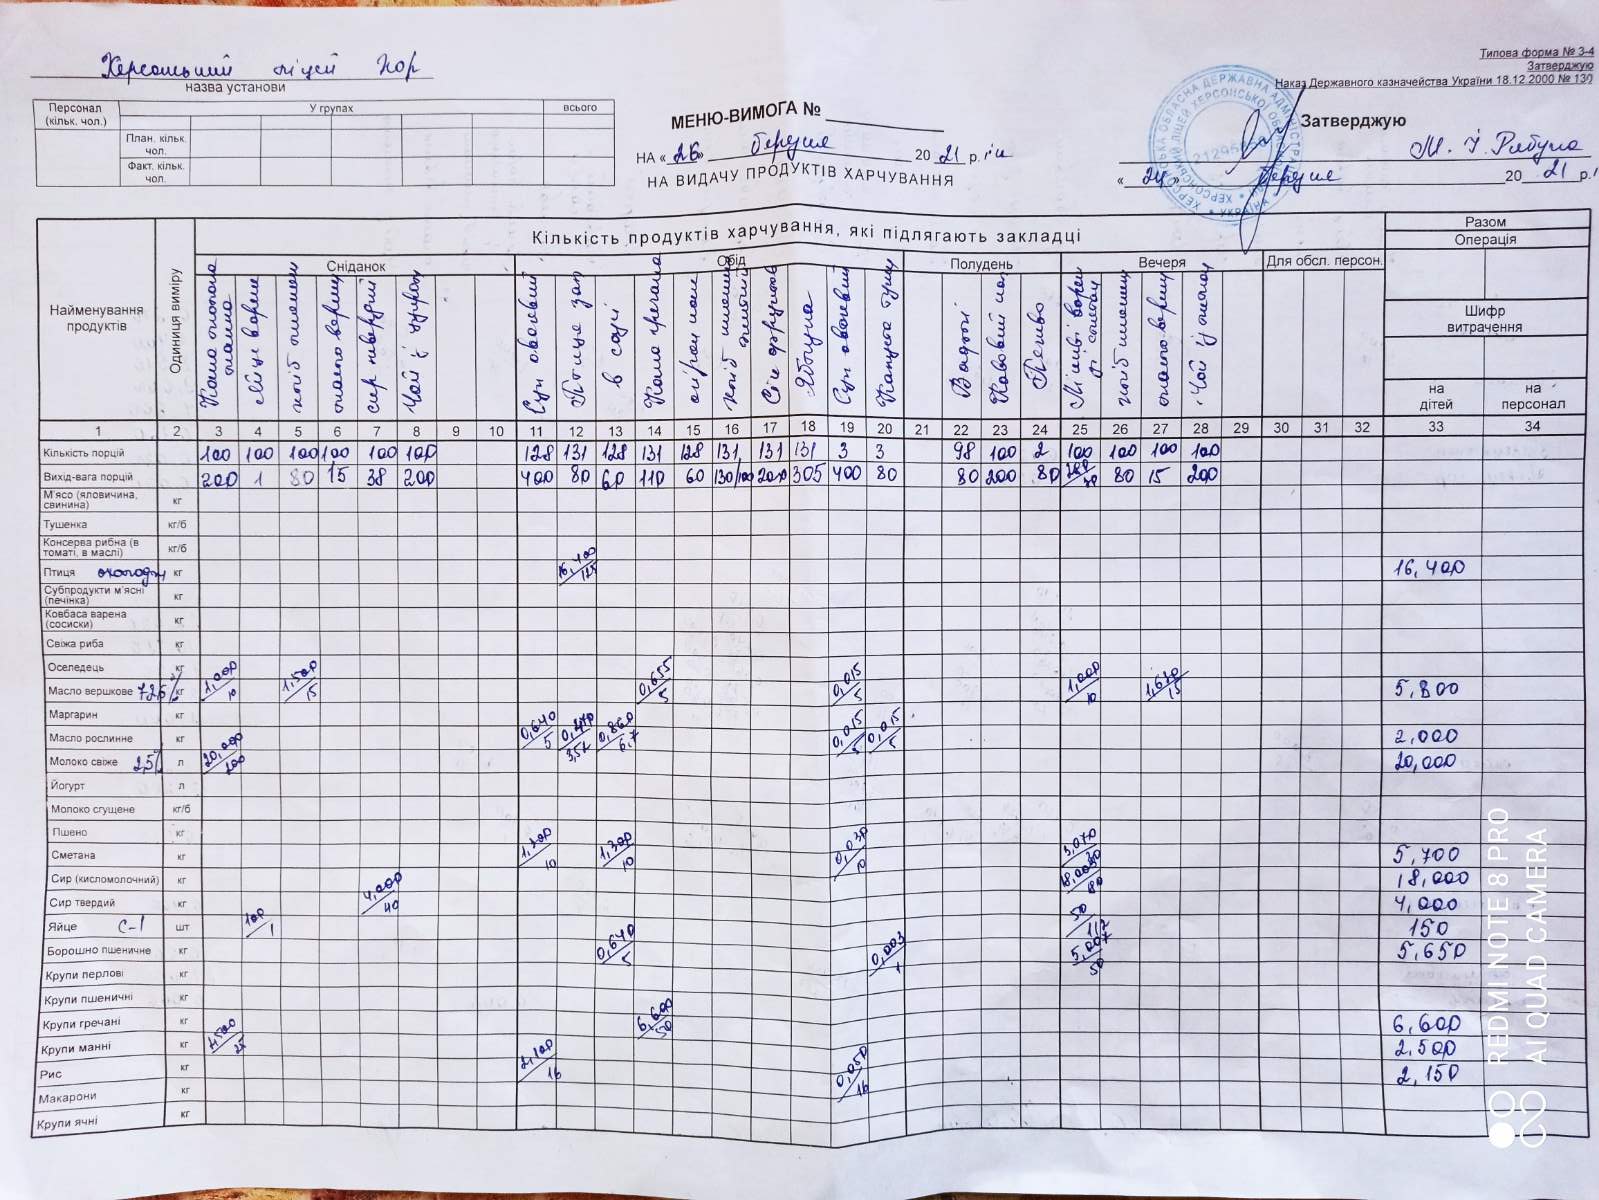 Херсонський ліцей ХОР
назва установи
Типова форма № З-4
Затверджую
Наказ Державного казначейства України 18.12.2000 № 130
Персонал (кільк. чол.) У групах всього
План. кільк. чол.
Факт. кільк. чол.
МЕНЮ-ВИМОГА №
НА «26» березня 2021 р.
НА ВИДАЧУ ПРОДУКТІВ ХАРЧУВАННЯ
Затверджую
М. І. Рябуха
«24» березня 2021 р.
Найменування продуктів
Одиниця виміру
Кількість продуктів харчування, які підлягають закладці
Разом
Операція
Сніданок Обід Полудень Вечеря Для обсл. персон.
Шифр витрачення
на дітей на персонал
Каша молочна манна
Яйце варене
Хліб пшенич
масло верш
сир твердий
Чай з цукром
Суп овочевий
Птиця зап
в соусі
Каша гречана
огірок
хліб пшенич
Сік фруктов
Яблука
Суп овочевий
Капуста туш
Вафлі
Кавовий нап
Печиво
Ліниві варен зі сметан
хліб пшенич
масло верш
Чай
1 2 3 4 5 6 7 8 9 10 11 12 13 14 15 16 17 18 19 20 21 22 23 24 25 26 27 28 29 30 31 32 33 34
Кількість порцій 100 100 100 100 100 100 128 131 128 131 128 131 131 131 3 3 98 100 2 100 100 100 100
Вихід-вага порцій 200 1 80 15 38 200 400 80 60 110 60 130/100 200 305 400 80 80 200 80 80 15 200
М'ясо (яловичина, свинина) кг
Тушенка кг/б
Консерва рибна (в томаті, в маслі) кг/б
Птиця охолодж кг 16,400/125 16,400
Субпродукти м'ясні (печінка) кг
Ковбаса варена (сосиски) кг
Свіжа риба кг
Оселедець кг
Масло вершкове 72,5 кг 1,000/10 1,500/15 0,655/5 0,015/5 1,000/10 1,630/15 5,800
Маргарин кг
Масло рослинне кг 0,640/5 0,470/3,5 0,860/6,7 0,015/5 0,015/5 2,000
Молоко свіже 2,5% л 20,000/200 20,000
Йогурт л
Молоко сгущене кг/б
Пшено кг
Сметана кг 1,300/10 1,300/10 0,030/10 3,070/30 5,700
Сир (кисломолочний) кг 18,000/80 18,000
Сир твердий кг 4,000/40 4,000
Яйце С-1 шт 100/1 50/1/2 150
Борошно пшеничне кг 0,640/5 0,003/1 5,007/50 5,650
Крупи перлові кг
Крупи пшеничні кг
Крупи гречані кг 6,600/50 6,600
Крупи манні кг 2,500/25 2,500
Рис кг 2,100/16 0,050/16 2,150
Макарони кг
Крупи ячні кг
REDMI NOTE 8 PRO
AI QUAD CAMERA